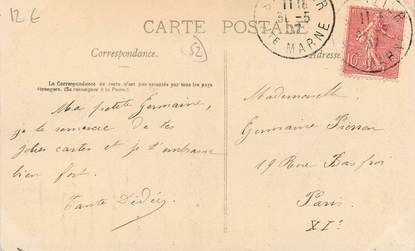 12 €
52
CARTE POSTALE
11 15
31-5
07
TE MARNE
Correspondance.
Adresse
La Correspondance au recto n'est pas acceptée par tous les pays
étrangers. (Se renseigner à la Poste.)
Ma petite Germaine,
je te remercie de tes
jolies cartes et je t'embrasse
bien fort.
Tante Dédée
Mademoiselle
Germaine Pierron
19 Rue Basfroi
Paris
XIe
10